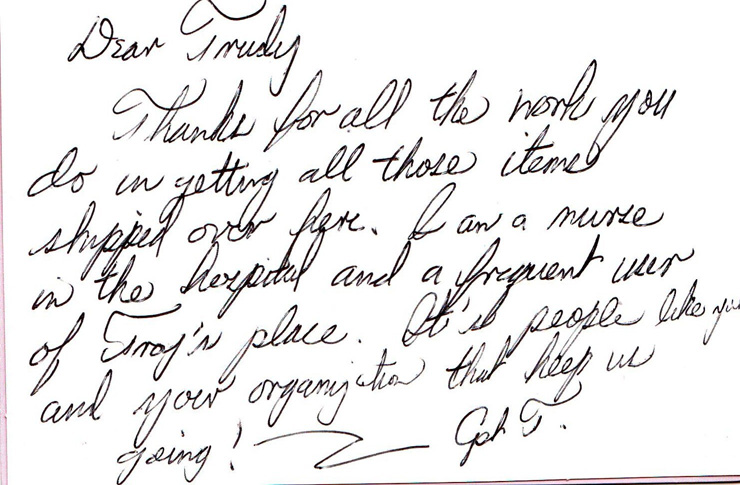 Dear Trudy
Thanks for all the work you
do in getting all those items
shipped over here. I am a nurse
in the hospital and a frequent user
of Troy's place. It's people like you
and your organization that keep us
going! Cpt T.